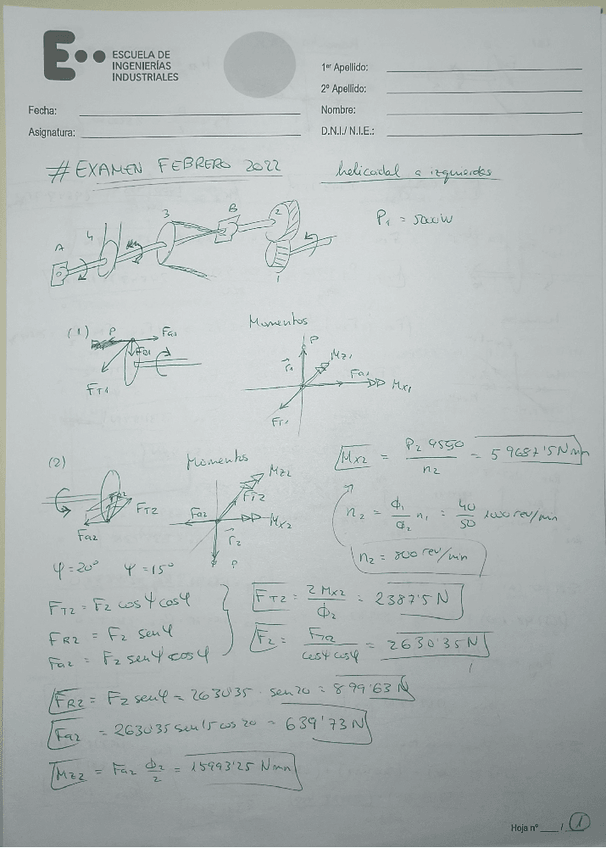 E
ESCUELA DE
INGENIERÍAS
INDUSTRIALES
1er Apellido:
2º Apellido:
Fecha:
Nombre:
Asignatura:
D.N.I./ N.I.E.:
# EXAMEN FEBRERO 2022
helicoidal a izquierdas
P1 = 5000W
A 4 3 B 2 1
(1)
P Fa1 FR1 FT1
Momentos
P r1 Mz1 Fa1 Mx1 FT1
(2)
FT2 Fa2
Momentos
Mz2 FT2 Mx2 Fa2 r2 P
Mx2 = P2 9550 / n2 = 59687'5 Nmm
n2 = ϕ1/ϕ2 n1 = 40/50 1000 rev/min
n2 = 800 rev/min
φ = 20° ψ = 15°
FT2 = F2 cos ψ cos φ
FR2 = F2 sen φ
Fa2 = F2 sen ψ cos φ
FT2 = 2 Mx2 / ϕ2 = 2387'5 N
F2 = FT2 / cos ψ cos φ = 2630'35 N
FR2 = F2 sen φ = 2630'35 · sen 20 = 899'63 N
Fa2 = 2630'35 sen 15 cos 20 = 639'73 N
Mz2 = Fa2 ϕ2/2 = 15993'25 Nmm
Hoja nº ___ / 1